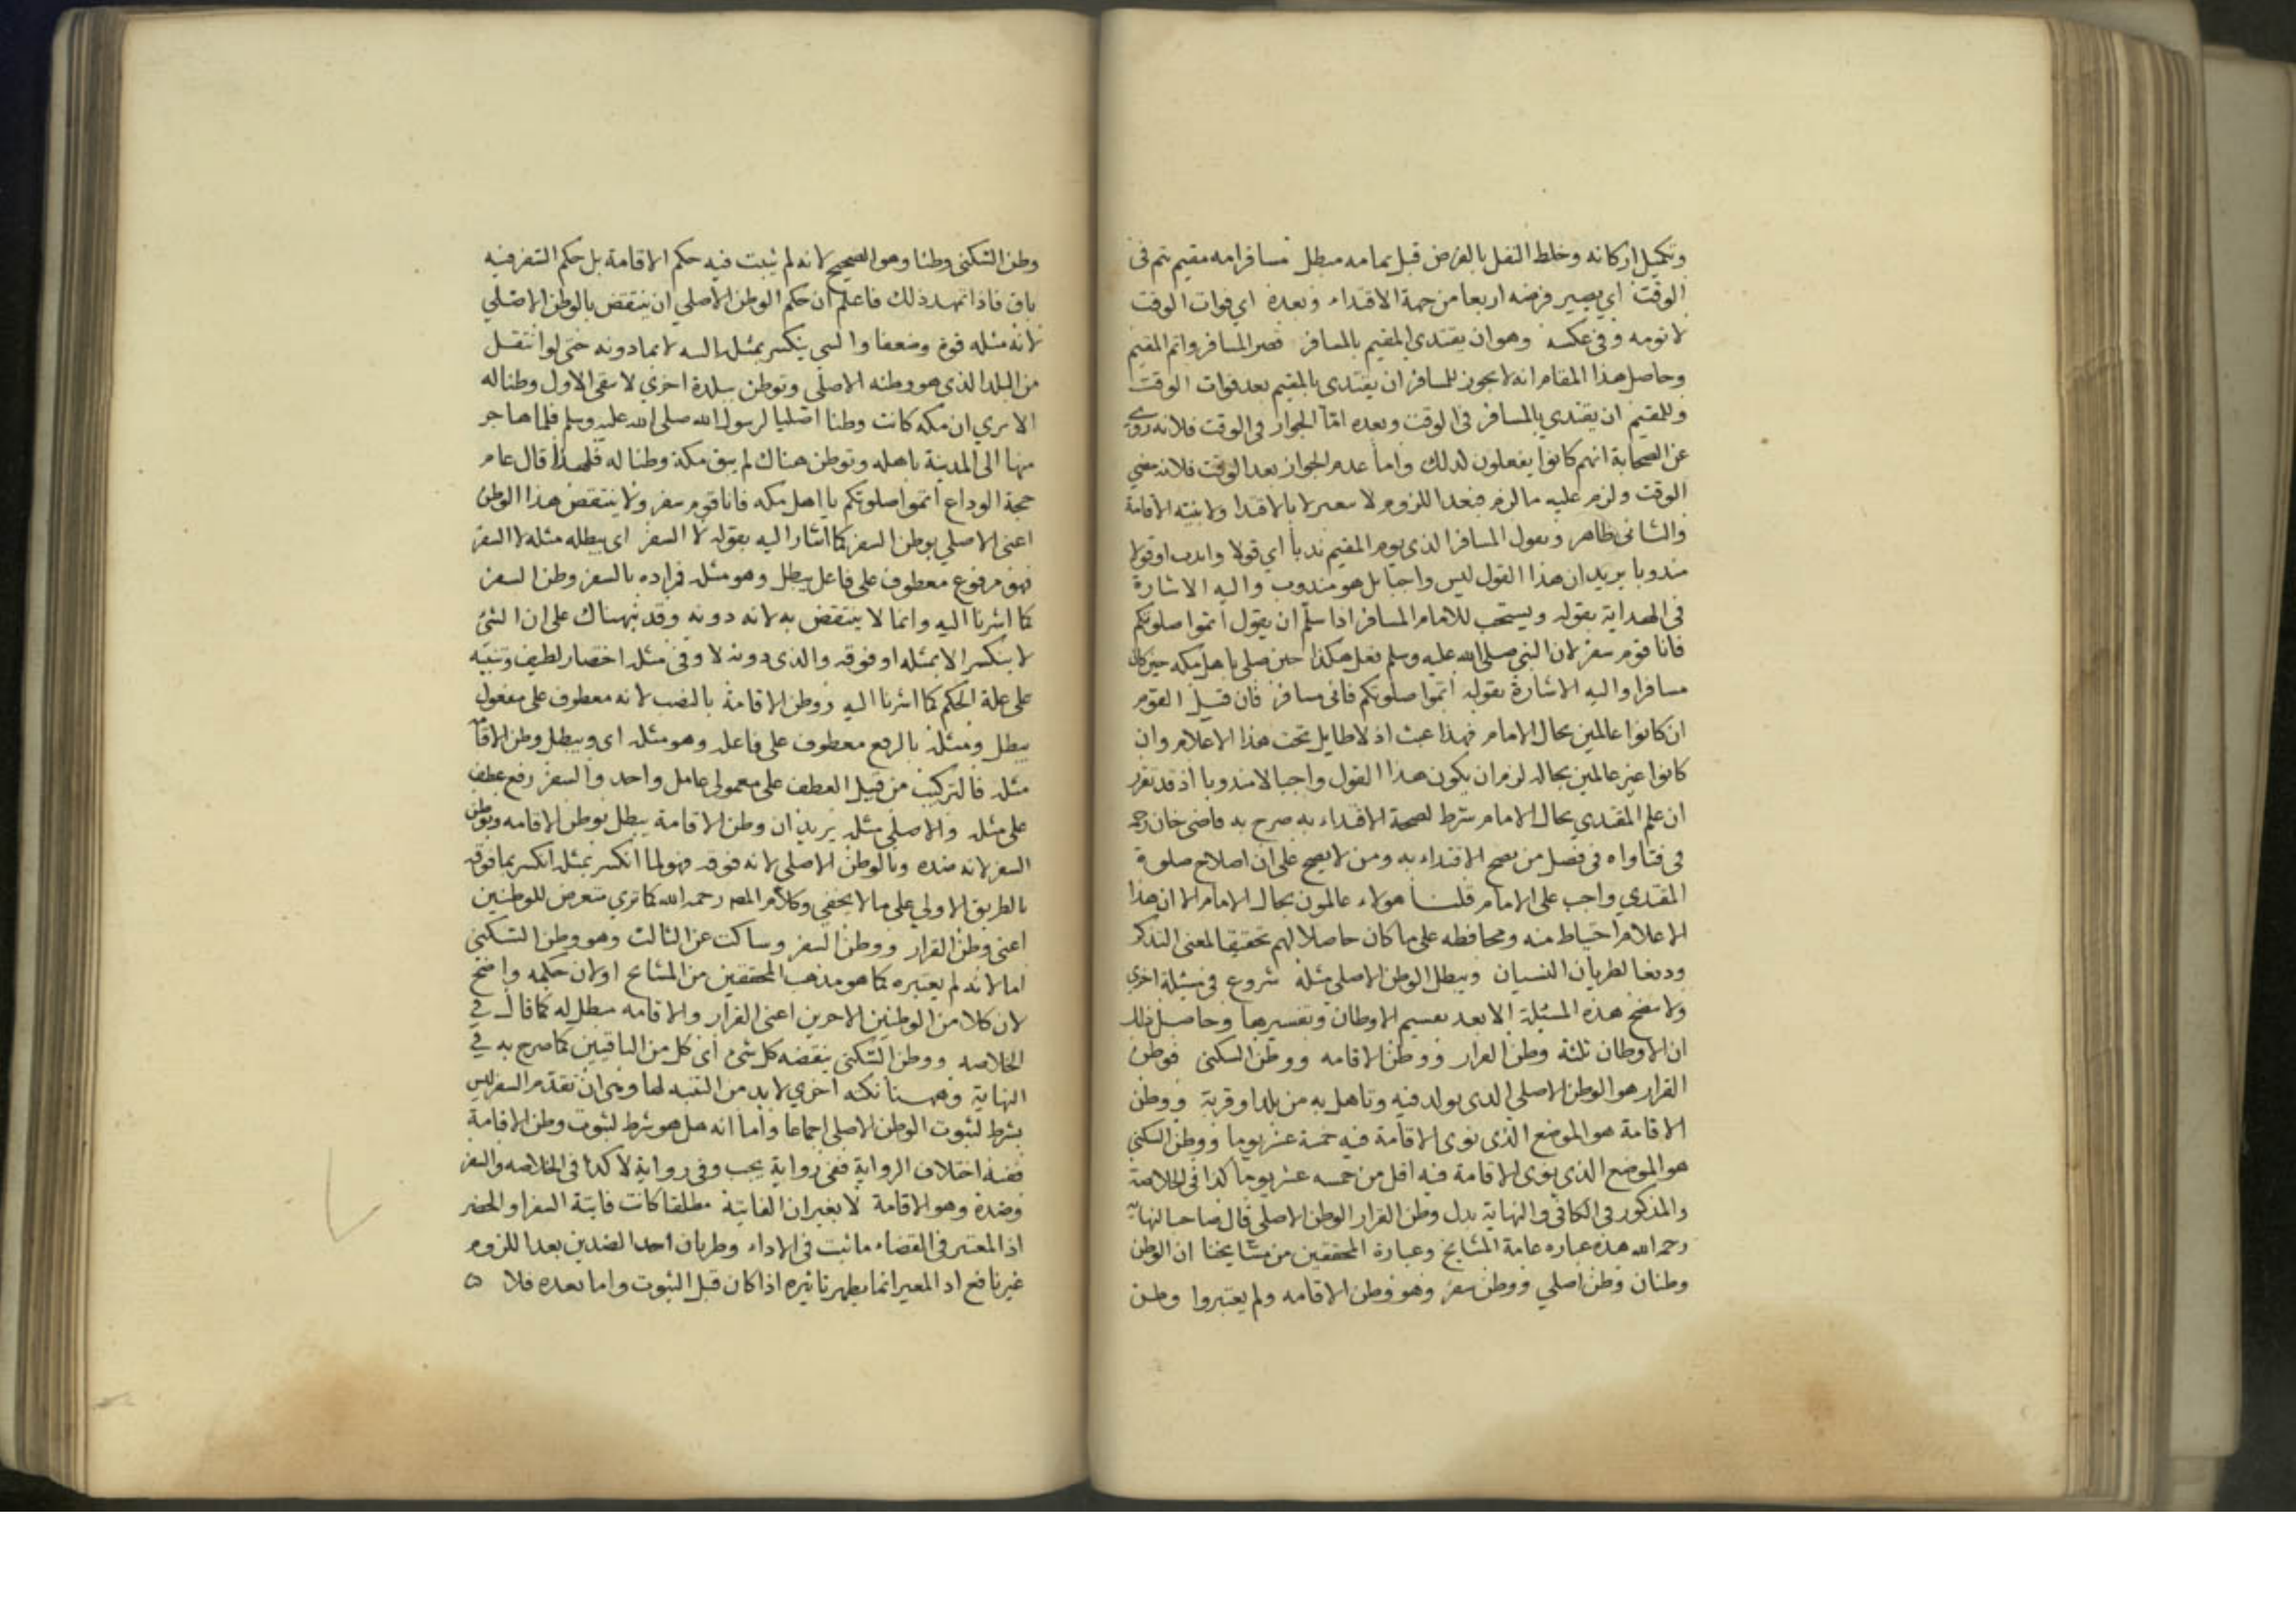 وتكميل اركانه وخلط النفل بالفرض قبل تمامه مبطل مسافر امه مقيم يتم فى
الوقت اي يصير فرضه اربعا من جهة الاقتداء وبعده اي فوات الوقت
لا تومه وفى عكسه وهو ان يقتدي المقيم بالمسافر قصر المسافر واتم المقيم
وحاصل هذا المقام انه لا يجوز للمسافر ان يقتدى بالمقيم بعد فوات الوقت
وللمقيم ان يقتدي بالمسافر فى الوقت وبعده امّا الجواز فى الوقت فلانه روي
عن الصحابة انهم كانوا يفعلون كذلك واما عدم الجواز بعد الوقت فلانه مضي
الوقت ولزم عليه مالزم فبعد اللزوم لا يتغير لا بالاقتدا ولا بنية الاقامة
والثانى ظاهر ويقول المسافر الذى يوم المقيم ندبا اي قولا واندب او قولا
مندوبا يريد ان هذا القول ليس واجبا بل هو مندوب واليه الاشارة
فى الهداية بقوله ويستحب للامام المسافر اذا سلّم ان يقول اتموا صلوتكم
فانا قوم سفر لان النبى صلى الله عليه وسلم فعل هكذا حين صلى باهل مكه حين كان
مسافرا واليه الاشارة بقوله اتموا صلوتكم فانى مسافر فان قيل القوم
ان كانوا عالمين بحال الامام فهذا عبث اذ لا طايل تحت هذا الاعلام وان
كانوا غير عالمين بحاله لزم ان يكون هذا القول واجبا لا مندوبا اذ قد تقرر
ان علم المقتدي بحال الامام شرط لصحة الاقتداء به صرح به قاضى خان رحمه
فى فتاواه فى فصل من يصح الاقتداء به ومن لا يصح على ان اصلاح صلوة
المقتدي واجب على الامام قلنا هولاء عالمون بحال الامام الا ان هذا
الاعلام احتياط منه ومحافظه على ما كان حاصلا لهم تحقيقا لمعنى التذكر
ودفعا لطريان النسيان ويبطل الوطن الاصلى مثله شروع فى مسئلة اخرى
ولا يتضح هذه المسئلة الا بعد تقسيم الاوطان وتفسيرها وحاصل ذلك
ان الاوطان ثلثة وطن القرار ووطن الاقامه ووطن السكنى فوطن
القرار هو الوطن الاصلى الذى يولد فيه وتاهل به من بلد او قرية ووطن
الاقامة هو الموضع الذى نوى الاقامة فيه خمسة عشر يوما ووطن السكنى
هو الموضع الذى نوى الاقامة فيه اقل من خمسه عشر يوما كذا فى الخلاصة
والمذكور فى الكافى والنهاية بدل وطن القرار الوطن الاصلى قال صاحب النهاية
رحمه الله هذه عباره عامة المشايخ وعبارة المحققين من مشايخنا ان الوطن
وطنان وطن اصلي ووطن سفر وهو وطن الاقامه ولم يعتبروا وطن
وطن السكنى وطنا وهو الصحيح لانه لم يثبت فيه حكم الاقامة بل حكم السفر فيه
باق فاذا تمهد ذلك فاعلم ان حكم الوطن الاصلي ان ينتقض بالوطن الاصلي
لانه مثله قوة وضعفا والشى ينكسر بمثله لا بمادونه حتى لو انتقل
من البلد الذى هو وطنه الاصلى وتوطن ببلدة اخرى لا يبقى الاول وطنا له
الا يرى ان مكه كانت وطنا اصليا لرسول الله صلى الله عليه وسلم فلما هاجر
منها الى المدينة باهله وتوطن هناك لم يبق مكة وطنا له فلهذا قال عام
حجة الوداع اتموا صلوتكم يا اهل مكه فانا قوم سفر ولا ينتقض هذا الوطن
اعنى الاصلي بوطن السفر كما اشار اليه بقوله لا السفر اى يبطله مثله لا السفر
فهو مرفوع معطوف على فاعل يبطل وهو مثله فمراده بالسفر وطن السفر
كما اشرنا اليه وانما لا ينتقض به لانه دونه وقد نبهناك على ان الشئ
لا ينكسر الا بمثله او فوقه والذى دونه لا وفى مثله اختصار لطيف وتنبيه
على علة الحكم كما اشرنا اليه ووطن الاقامة بالنصب لانه معطوف على مفعول
يبطل ومثله بالرفع معطوف على فاعله وهو مثله اى ويبطل وطن الاقامة
مثله فالتركيب من قبيل العطف على معمولى عامل واحد والسفر رفع عطف
على مثله والاصلى مثله يريد ان وطن الاقامة يبطل بوطن الاقامه وبوطن
السفر لانه ضده وبالوطن الاصلى لانه فوقه فهو لما انكسر بمثله انكسر بما فوقه
بالطريق الاولي على ما لا يخفى وكلام المص رحمه الله كما ترى متعرض للوطنين
اعنى وطن القرار ووطن السفر وساكت عن الثالث وهو وطن السكنى
اما لانه لم يعتبره كما هو مذهب المحققين من المشايخ او لان حكمه واضح
لان كلا من الوطنين الاخرين اعنى القرار والاقامه مبطل له كما قال في
الخلاصه ووطن السكنى ينقضه كل شئ اى كل من الباقيين كما صرح به في
النهاية وههنا نكته اخري لا بد من التنبه لها وهى ان تقدم السفر ليس
بشرط لثبوت الوطن الاصلى اجماعا واما انه هل هو شرط لثبوت وطن الاقامة
ففيه اختلاف الرواية ففى رواية يجب وفى رواية لا كذا فى الخلاصه والسفر
وضده وهو الاقامة لا يغيران الفايتة مطلقا كانت فايتة السفر او الحضر
اذ المعتبر فى القضاء ما ثبت فى الاداء وطريان احد الضدين بعد اللزوم
غير نافع اذ المغير انما يظهر تاثيره اذا كان قبل الثبوت واما بعده فلا